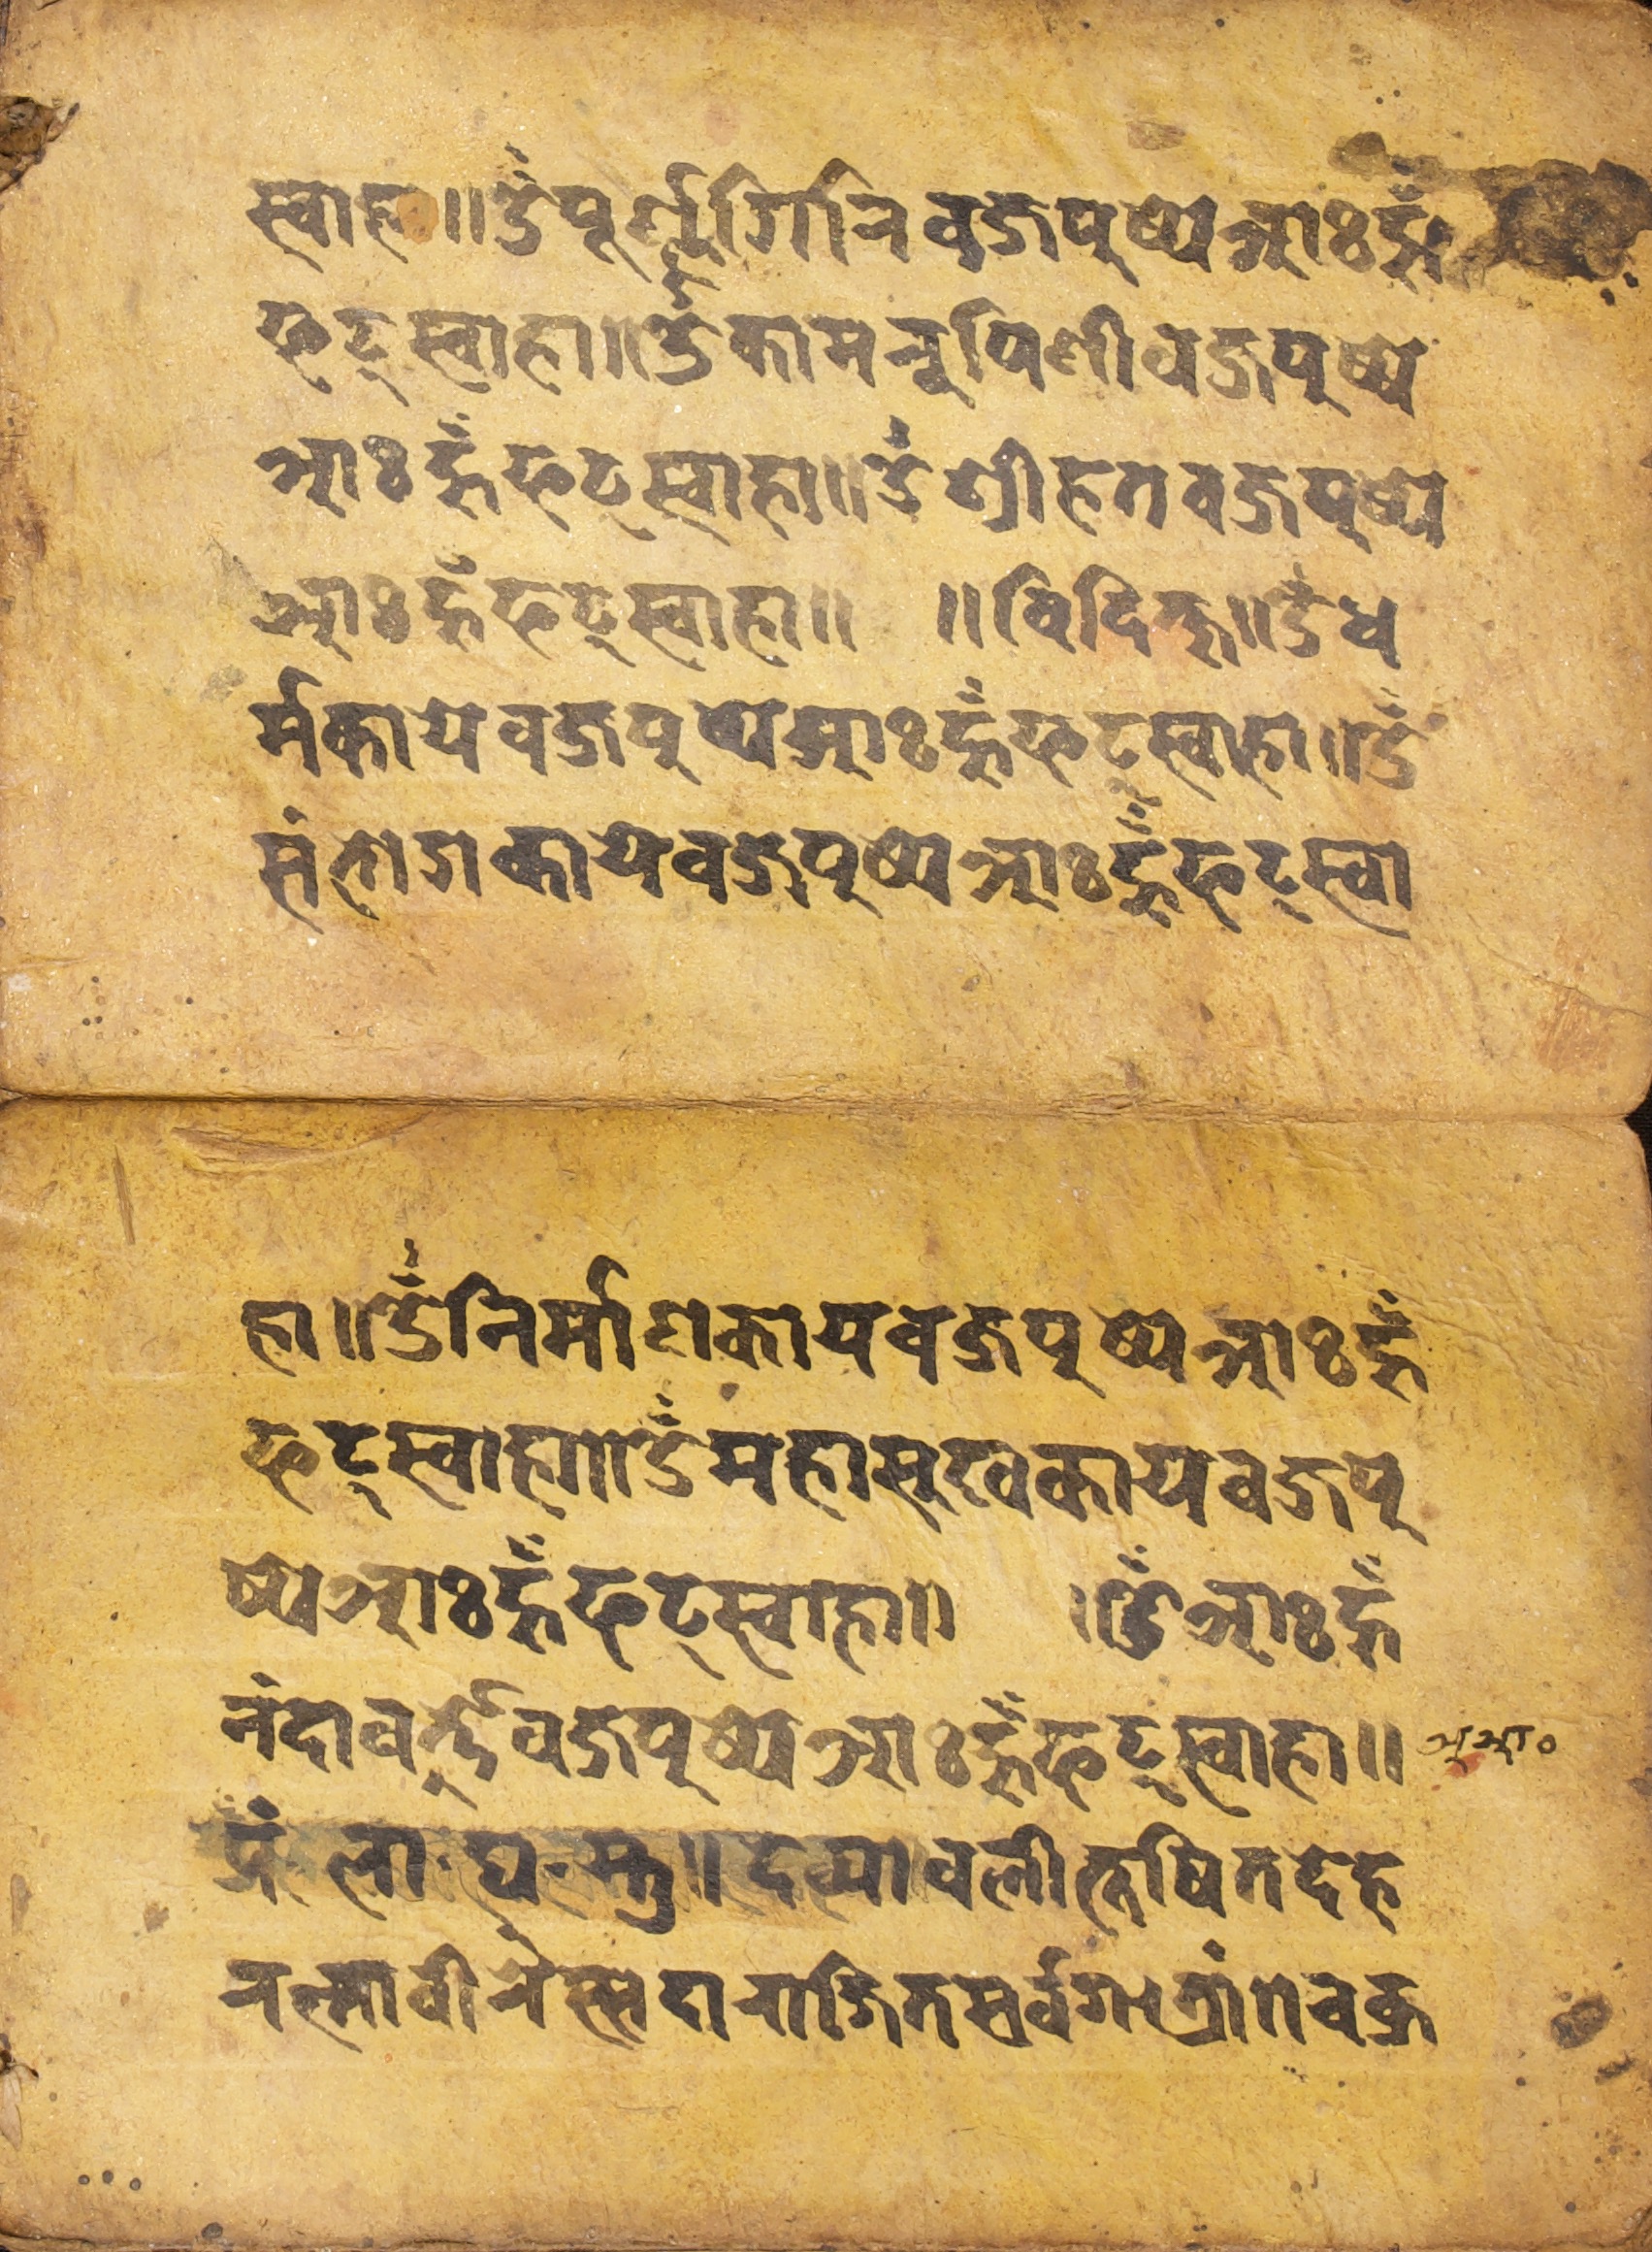 स्वाहा॥ॐपूर्ण्णगिरिवज्रपुष्पेआःहूँ
फट्स्वाहा॥ॐकामरूपिणीवज्रपुष्पे
आःहूँफट्स्वाहा॥ॐश्रीहतवज्रपुष्पे
आःहूँफट्स्वाहा॥ ॥विदिक्षु॥ॐध
र्मकायवज्रपुष्पेआःहूँफट्स्वाहा॥ॐ
संभोगकायवज्रपुष्पेआःहूँफट्स्वा
हा॥ॐनिर्माणकायवज्रपुष्पेआःहूँ
फट्स्वाहा॥ॐमहासुखकायवज्रपु
ष्पेआःहूँफट्स्वाहा॥ ।ॐआःहूँ
नंदावर्त्तवज्रपुष्पेआःहूँफट्स्वाहा॥
पं·ला·घ·स्तु॥ भूषितदेह
सर्वग